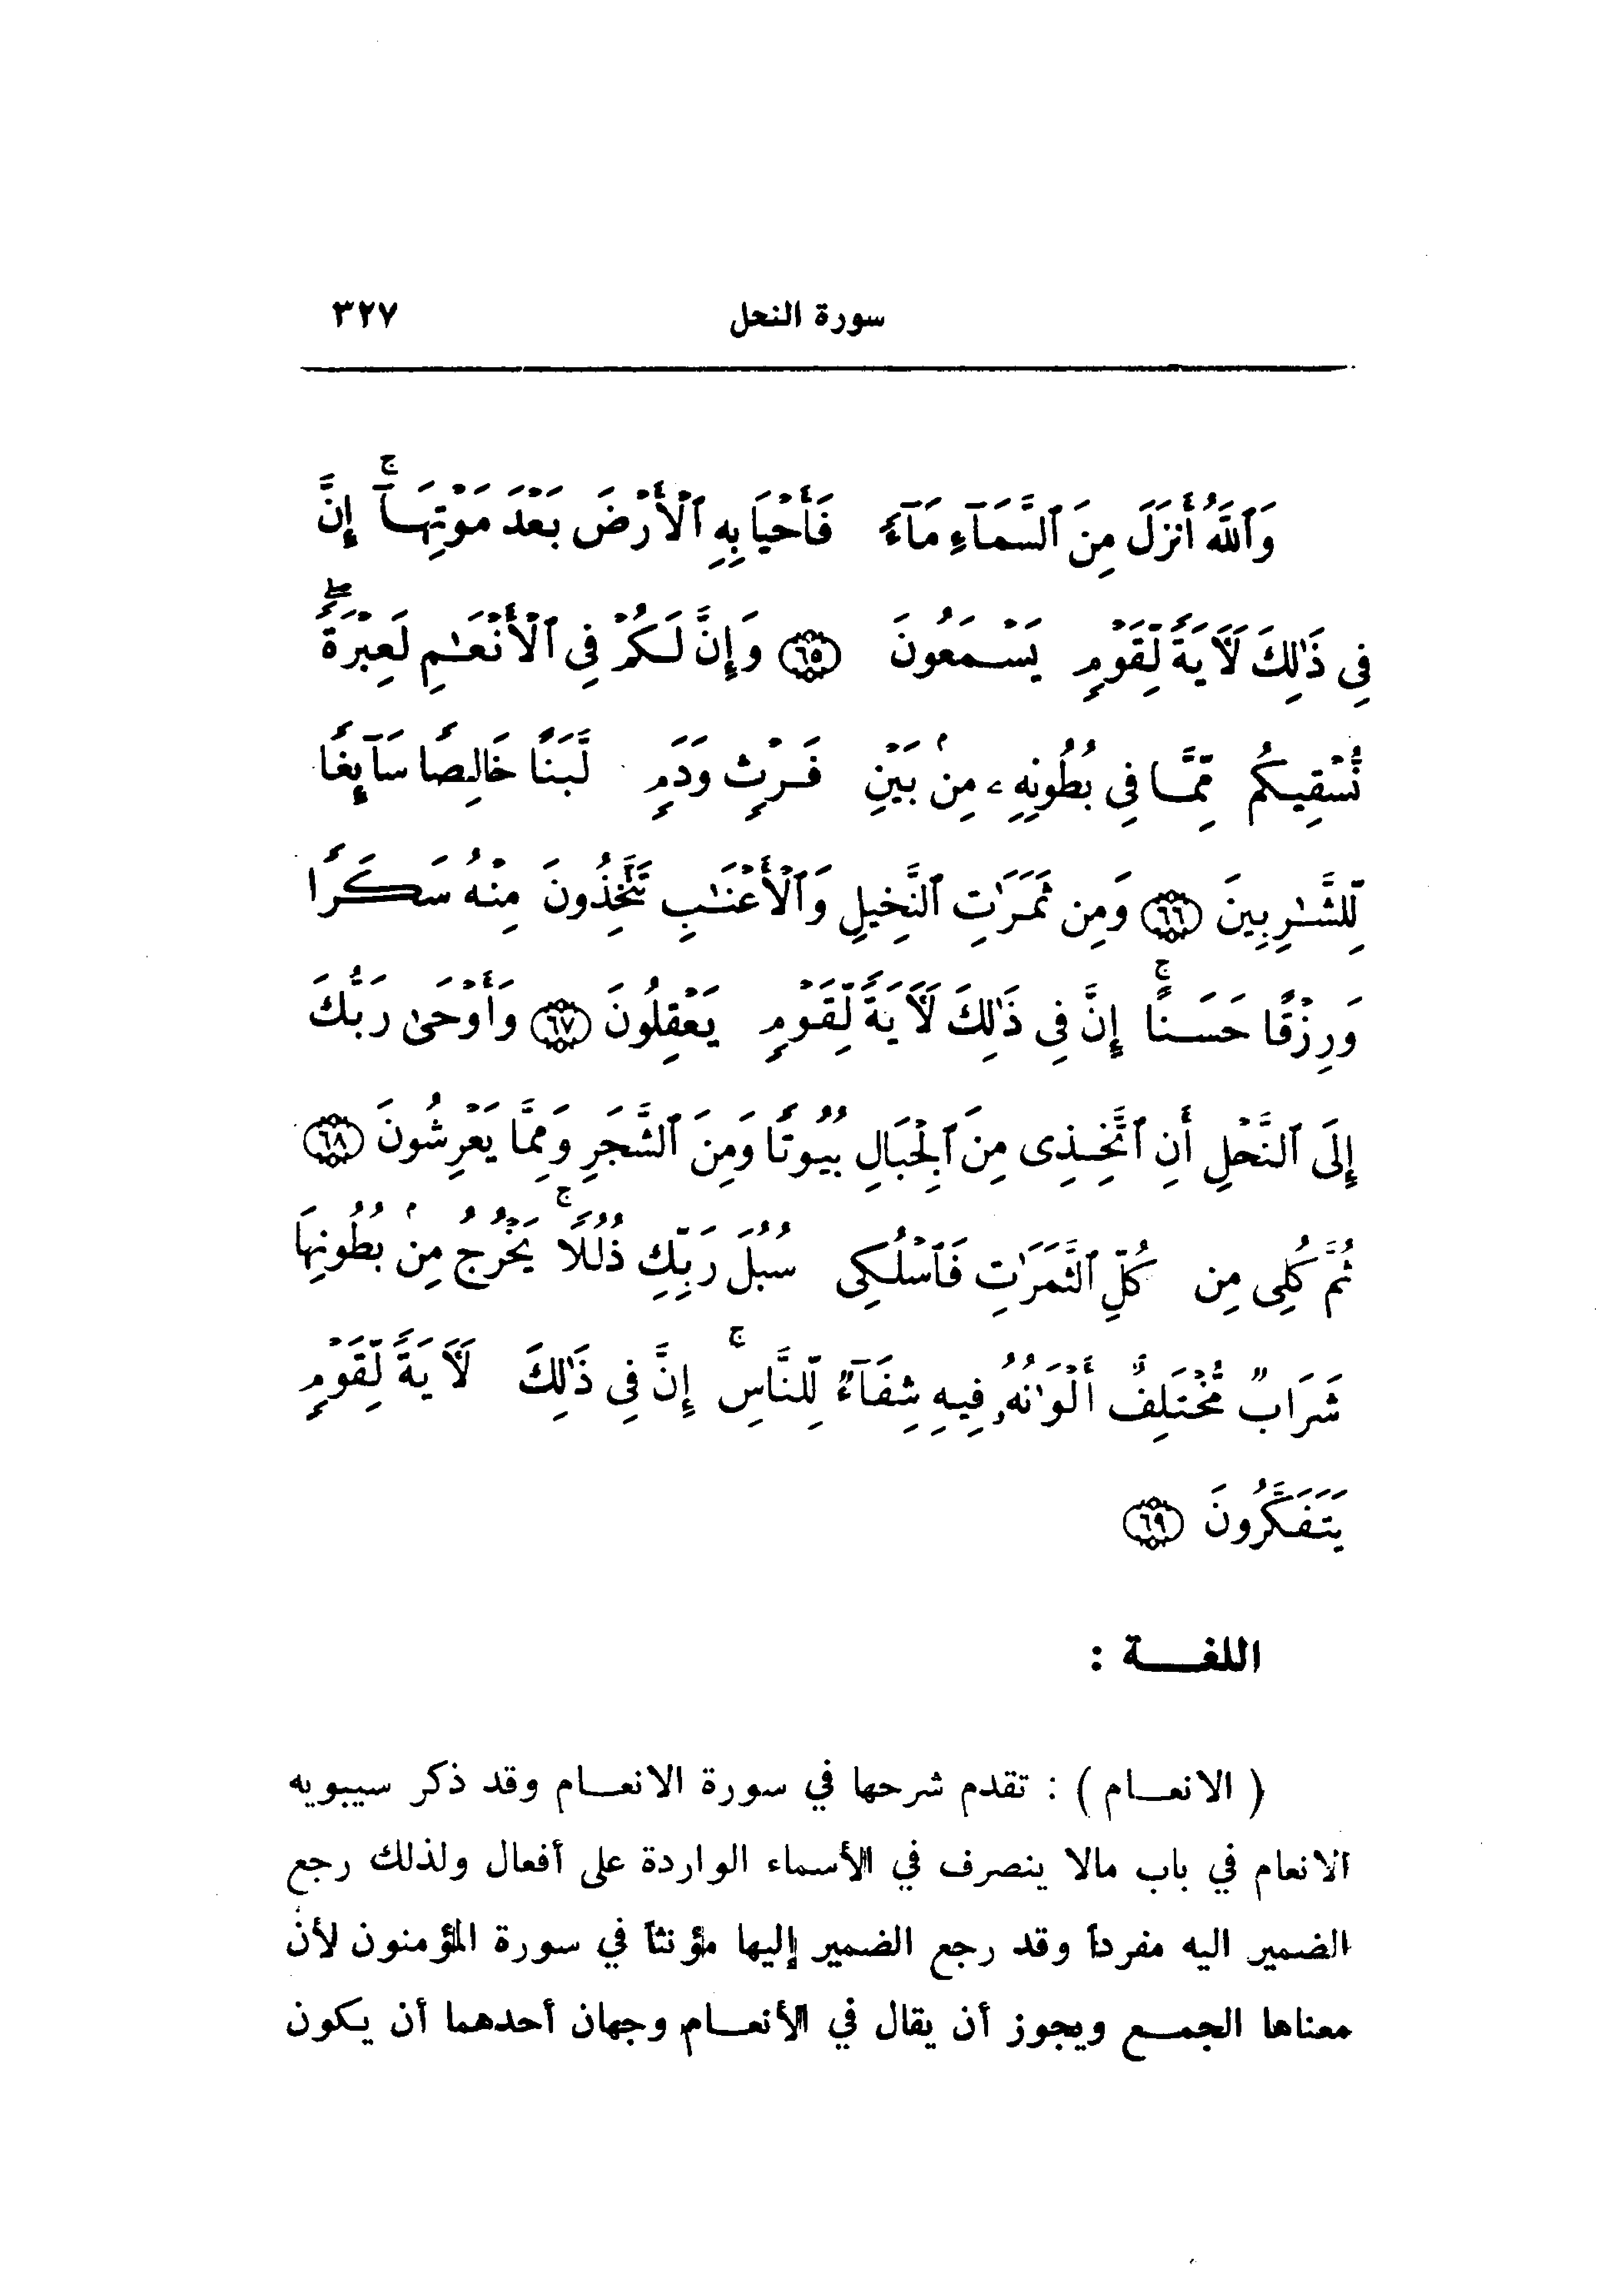 سورة النحل ٣٢٧
وَٱللَّهُ أَنزَلَ مِنَ ٱلسَّمَآءِ مَآءً فَأَحْيَا بِهِ ٱلْأَرْضَ بَعْدَ مَوْتِهَآ ۚ إِنَّ
فِى ذَٰلِكَ لَآيَةً لِّقَوْمٍ يَسْمَعُونَ ٦٥ وَإِنَّ لَكُمْ فِى ٱلْأَنْعَٰمِ لَعِبْرَةً ۖ
نُّسْقِيكُم مِّمَّا فِى بُطُونِهِۦ مِنۢ بَيْنِ فَرْثٍ وَدَمٍ لَّبَنًا خَالِصًا سَآئِغًا
لِّلشَّٰرِبِينَ ٦٦ وَمِن ثَمَرَٰتِ ٱلنَّخِيلِ وَٱلْأَعْنَٰبِ تَتَّخِذُونَ مِنْهُ سَكَرًا
وَرِزْقًا حَسَنًا ۚ إِنَّ فِى ذَٰلِكَ لَآيَةً لِّقَوْمٍ يَعْقِلُونَ ٦٧ وَأَوْحَىٰ رَبُّكَ
إِلَى ٱلنَّحْلِ أَنِ ٱتَّخِذِى مِنَ ٱلْجِبَالِ بُيُوتًا وَمِنَ ٱلشَّجَرِ وَمِمَّا يَعْرِشُونَ ٦٨
ثُمَّ كُلِى مِن كُلِّ ٱلثَّمَرَٰتِ فَٱسْلُكِى سُبُلَ رَبِّكِ ذُلُلًا ۚ يَخْرُجُ مِنۢ بُطُونِهَا
شَرَابٌ مُّخْتَلِفٌ أَلْوَٰنُهُۥ فِيهِ شِفَآءٌ لِّلنَّاسِ ۚ إِنَّ فِى ذَٰلِكَ لَآيَةً لِّقَوْمٍ
يَتَفَكَّرُونَ ٦٩
اللغــة :
( الانعــام ) : تقدم شرحها في سورة الانعــام وقد ذكر سيبويه
الانعام في باب مالا ينصرف في الأسماء الواردة على أفعال ولذلك رجع
الضمير اليه مفرداً وقد رجع الضمير إليها مؤنثاً في سورة المؤمنون لأن
معناها الجمــع ويجوز أن يقال في الأنعــام وجهان أحدهما أن يكون